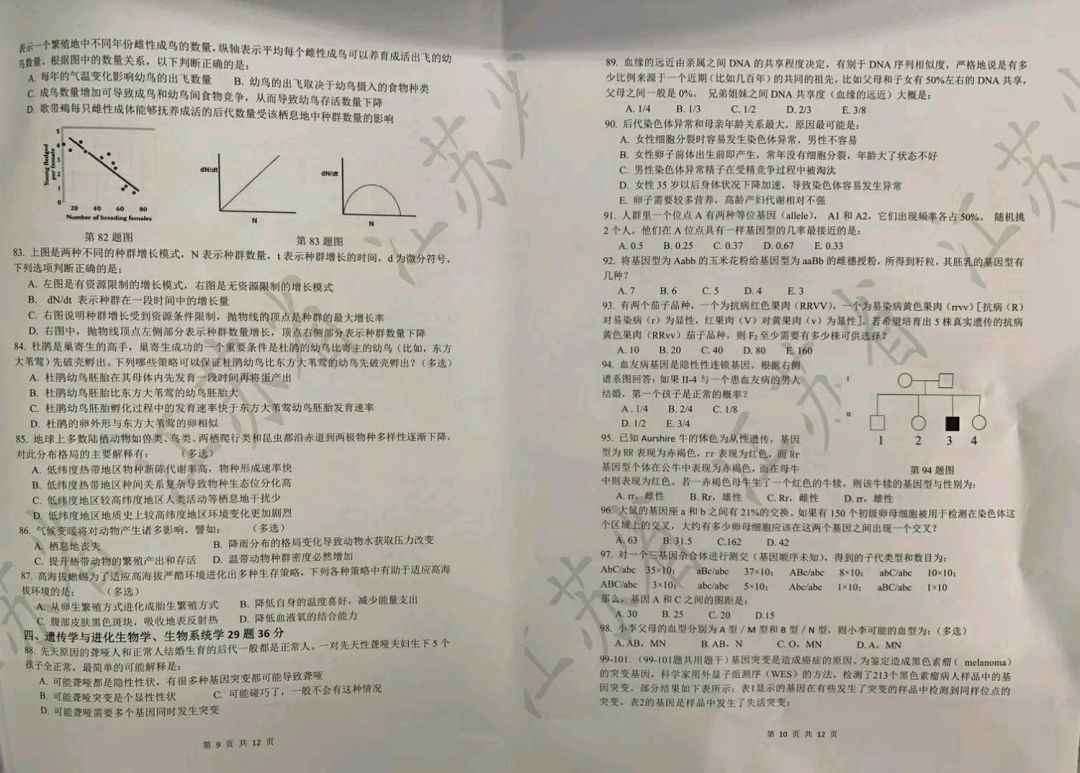 表示一个繁殖地中不同年份雌性成鸟的数量,纵轴表示平均每个雌性成鸟可以养育成活出飞的幼
鸟数量。根据图中的数量关系,以下判断正确的是:
A. 每年的气温变化影响幼鸟的出飞数量 B. 幼鸟的出飞取决于幼鸟摄入的食物种类
C. 成鸟数量增加可导致成鸟和幼鸟间食物竞争,从而导致幼鸟存活数量下降
D. 歌带鹀每只雌性成体能够抚养成活的后代数量受该栖息地中种群数量的影响
Young fledged per female
5
4
3
2
1
0
20 40 60 80
Number of breeding females
dN/dt
N
dN/dt
N
第 82 题图
第 83 题图
83. 上图是两种不同的种群增长模式,N 表示种群数量,t 表示种群增长的时间,d 为微分符号,
下列选项判断正确的是:
A. 左图是有资源限制的增长模式,右图是无资源限制的增长模式
B. dN/dt 表示种群在一段时间中的增长量
C. 右图说明种群增长受到资源条件限制,抛物线的顶点是种群的最大增长率
D. 右图中,抛物线顶点左侧部分表示种群数量增长,顶点右侧部分表示种群数量下降
84. 杜鹃是巢寄生的高手,巢寄生成功的一个重要条件是杜鹃的幼鸟比寄主的幼鸟(比如,东方
大苇莺)先破壳孵出。下列哪些策略可以保证杜鹃幼鸟比东方大苇莺的幼鸟先破壳孵出?(多选)
A. 杜鹃幼鸟胚胎在其母体内先发育一段时间再将蛋产出
B. 杜鹃幼鸟胚胎比东方大苇莺的幼鸟胚胎大
C. 杜鹃幼鸟胚胎孵化过程中的发育速率快于东方大苇莺幼鸟胚胎发育速率
D. 杜鹃的卵外形与东方大苇莺的卵相似
85. 地球上多数陆栖动物如兽类、鸟类、两栖爬行类和昆虫都沿赤道到两极物种多样性逐渐下降,
对此分布格局的主要解释有: (多选)
A. 低纬度热带地区物种新陈代谢率高,物种形成速率快
B. 低纬度热带地区种间关系复杂导致物种生态位分化高
C. 低纬度地区较高纬度地区人类活动等栖息地干扰少
D. 低纬度地区地质史上较高纬度地区环境变化更加剧烈
86. 气候变暖将对动物产生诸多影响,譬如: (多选)
A. 栖息地丧失 B. 降雨分布的格局变化导致动物水获取压力改变
C. 提升热带动物的繁殖产出和存活 D. 温带动物种群密度必然增加
87. 高海拔蜥蜴为了适应高海拔严酷环境进化出多种生存策略,下列各种策略中有助于适应高海
拔环境的是: (多选)
A. 从卵生繁殖方式进化成胎生繁殖方式 B. 降低自身的温度喜好,减少能量支出
C. 腹部皮肤黑色斑块,吸收地表反射热 D. 降低血液氧的结合能力
四、遗传学与进化生物学、生物系统学 29 题 36 分
88. 先天原因的聋哑人和正常人结婚生育的后代一般都是正常人。一对先天性聋哑夫妇生下 5 个
孩子全正常,最简单的可能解释是:
A. 可能聋哑都是隐性性状,有很多种基因突变都可能导致聋哑
B. 可能聋哑突变是个显性性状 C. 可能碰巧了,一般不会有这种情况
D. 可能聋哑需要多个基因同时发生突变
第 9 页 共 12 页
89. 血缘的远近由亲属之间 DNA 的共享程度决定,有别于 DNA 序列相似度,严格地说是有多
少比例来源于一个近期(比如几百年)的共同的祖先,比如父母和子女有 50%左右的 DNA 共享,
父母之间一般是 0%。 兄弟姐妹之间 DNA 共享度(血缘的远近)大概是:
A. 1/4 B. 1/3 C. 1/2 D. 2/3 E. 3/8
90. 后代染色体异常和母亲年龄关系最大,原因最可能是:
A. 女性细胞分裂时容易发生染色体异常,男性不容易
B. 女性卵子前体出生前即产生,常年没有细胞分裂,年龄大了状态不好
C. 男性染色体异常精子在受精竞争过程中被淘汰
D. 女性 35 岁以后身体状况下降加速,导致染色体容易发生异常
E. 卵子需要较多营养,高龄产妇代谢相对不强
91. 人群里一个位点 A 有两种等位基因(allele), A1 和 A2,它们出现频率各占 50%。 随机挑
2 个人,他们在 A 位点具有一样基因型的几率最接近的是:
A. 0.5 B. 0.25 C. 0.37 D. 0.67 E. 0.33
92. 将基因型为 Aabb 的玉米花粉给基因型为 aaBb 的雌穗授粉,所得到籽粒,其胚乳的基因型有
几种?
A. 7 B. 6 C. 5 D. 4 E. 3
93. 有两个茄子品种,一个为抗病红色果肉(RRVV),一个为易染病黄色果肉(rrvv)[抗病(R)
对易染病(r)为显性,红果肉(V)对黄果肉(v)为显性]。若希望培育出 5 株真实遗传的抗病
黄色果肉(RRvv)茄子品种,则 F₂至少需要有多少株可供选择?
A. 10 B. 20 C. 40 D. 80 E. 160
94. 血友病基因是隐性性连锁基因。根据右侧
谱系图回答:如果 II-4 与一个患血友病的男人
结婚,第一个孩子是正常的概率?
A. 1/4 B. 2/4 C. 1/8
D. 1/2 E. 3/4
I
II
1 2 3 4
第 94 题图
95. 已知 Aurshire 牛的体色为从性遗传,基因
型为 RR 表现为赤褐色,rr 表现为红色,而 Rr
基因型个体在公牛中表现为赤褐色,而在母牛
中则表现为红色。若一赤褐色母牛生了一个红色的牛犊,则该牛犊的基因型与性别为:
A. rr,雌性 B. Rr,雄性 C. Rr,雌性 D. rr,雄性
96. 大鼠的基因座 a 和 b 之间有 21%的交换。如果有 150 个初级卵母细胞被用于检测在染色体这
个区域上的交叉,大约有多少卵母细胞应该在这两个基因之间出现一个交叉?
A. 63 B. 31.5 C.162 D. 42
97. 对一个三基因杂合体进行测交(基因顺序未知),得到的子代类型和数目为:
AbC/abc 35×10; aBc/abc 37×10; ABc/abc 8×10; abC/abc 10×10;
ABC/abc 3×10; abc/abc 5×10; Abc/abc 1×10; aBC/abc 1×10
那么,基因 A 和 C 之间的图距是:
A. 30 B. 25 C. 20 D.15
98. 小李父母的血型分别为 A 型 / M 型和 B 型 / N 型,则小李可能的血型为:(多选)
A. AB,MN B. AB,N C. O,MN D. A,MN
99-101.(99-101题共用题干)基因突变是造成癌症的原因。为鉴定造成黑色素瘤( melanoma)
的突变基因,科学家用外显子组测序(WES)的方法,检测了213个黑色素瘤病人样品中的基
因突变,部分结果如下表所示:表1显示的基因在有些发生了突变的样品中检测到同样位点的
突变,表2的基因是样品中发生了失活突变:
第 10 页 共 12 页
江苏省
江苏